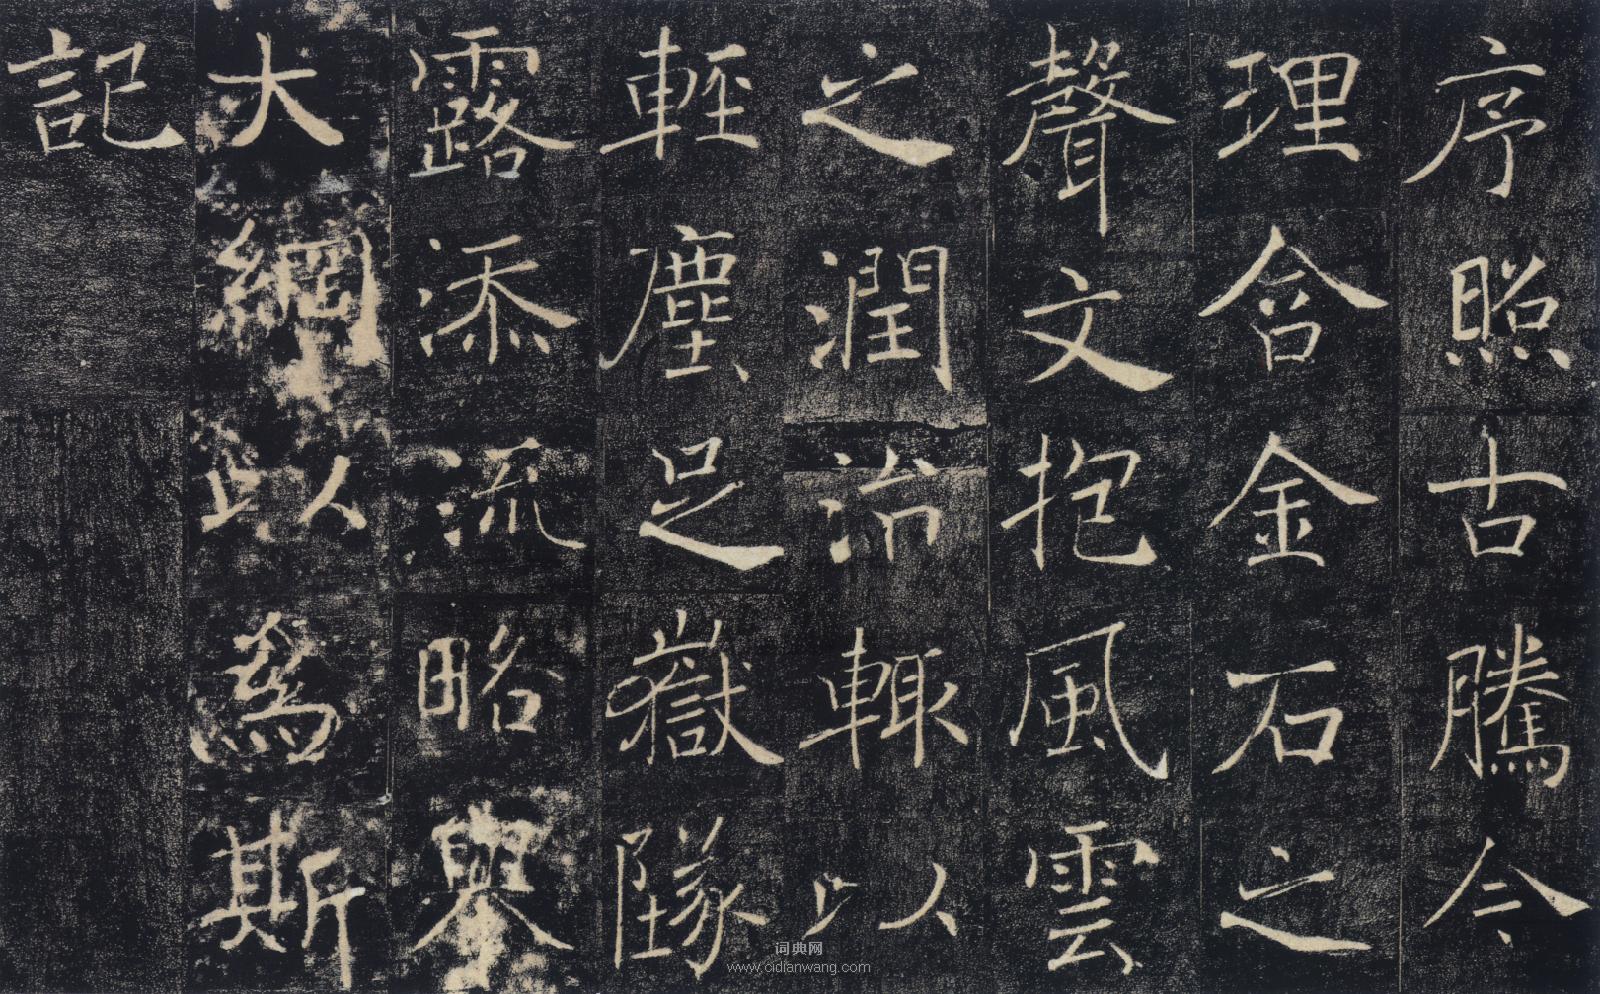 序照古騰今
理含金石之
聲文抱風雲
之潤治輒以
輕塵足嶽墜
露添流略舉
大綱以為斯
記
词典网
www.cidianwang.com